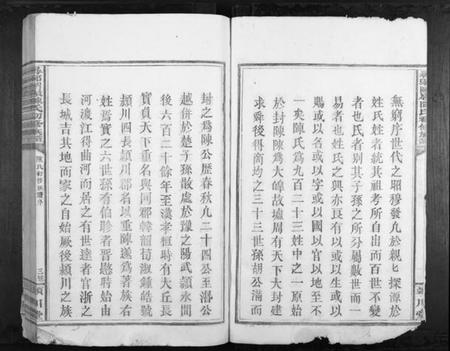 無窮序世代之昭穆發凡於親匕探源於
姓氏姓者統其祖考所自出而百世不變
也氏者別其子孫之所分屬數世而一
易者也姓氏之興亦莨有以或以生或以
賜或以名或以字或以國以官以地至不
一矣陳氏爲九百二十三姓中之一原始
於封陳陳爲大皡故墟周有天下大封建
求舜後得商均之三十三世孫胡公滿而
封之爲陳公歷春秋凡二十四公至湣公
越併於楚子孫散處於豫之陽武潁水間
後六百二十餘年至漢孝桓時有大丘長
寔負天下重名與同郡韓韶荀淑鍾皓號
潁川四長潁川郡名以重陳遂爲著族右
姓焉寔之六世孫有伯眕者晉愍聘始由
河渡江得曲河而居之有世達者官浙之
長城吉其地而家之自始厥後潁川之族
潁川堂